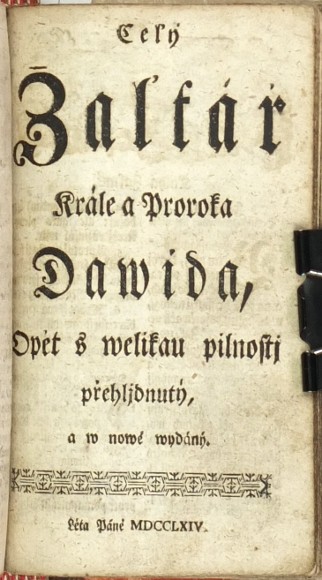 Celý
Žaltář
Krále a Proroka
Dawida,
Opět s welikau pilnostj
přehljdnutý,
a w nowě wydáný.
Léta Páně MDCCLXIV.